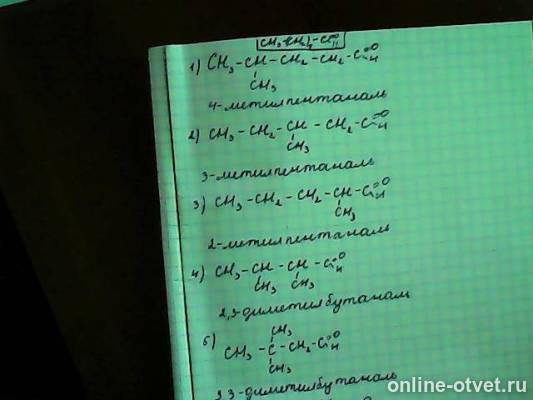 CH3-(CH2)4-C=O H
1) CH3-CH-CH2-CH2-C=O H
CH3
4-метилпентаналь
2) CH3-CH2-CH-CH2-C=O H
CH3
3-метилпентаналь
3) CH3-CH2-CH2-CH-C=O H
CH3
2-метилпентаналь
4) CH3-CH-CH-C=O H
CH3 CH3
2,3-диметилбутаналь
CH3
5) CH3-C-CH2-C=O H
CH3
3,3-диметилбутаналь
online-otvet.ru